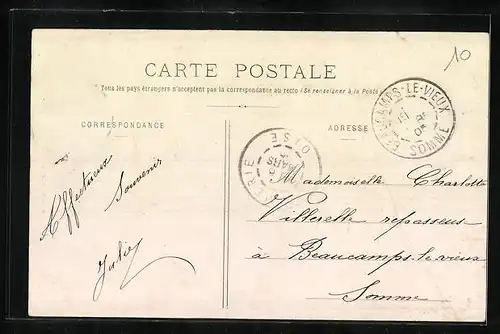 10
CARTE POSTALE
Tous les pays étrangers n'acceptent pas la correspondance au recto (Se renseigner à la Poste)
CORRESPONDANCE
ADRESSE
BEAUCAMPS-LE-VIEUX
SOMME
OISE
MARS
Affectueux
Souvenir
Mademoiselle Charlotte
Villerelle repasseuse
à Beaucamps-le-vieux
Somme